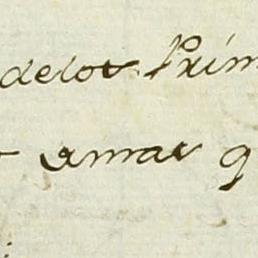 delos Prim
amar q